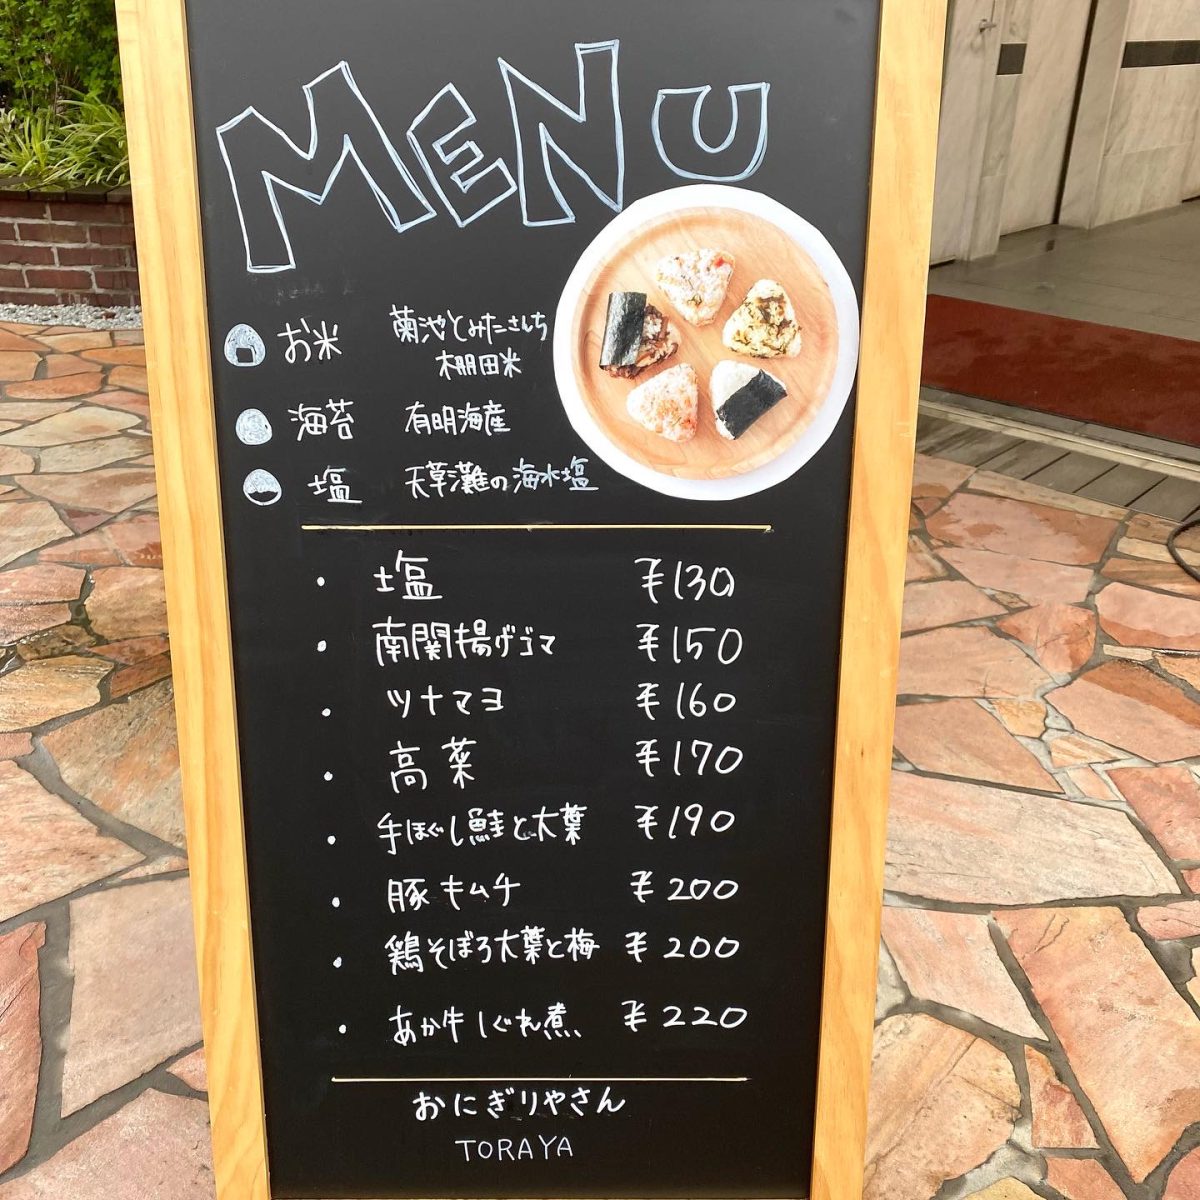 MENU
お米 菊池とみたさんち
棚田米
海苔 有明海産
塩 天草灘の海水塩
・ 塩 ¥130
・ 南関揚げゴマ ¥150
・ ツナマヨ ¥160
・ 高菜 ¥170
・ 手ほぐし鮭と大葉 ¥190
・ 豚キムチ ¥200
・ 鶏そぼろ大葉と梅 ¥200
・ あか牛しぐれ煮 ¥220
おにぎりやさん
TORAYA